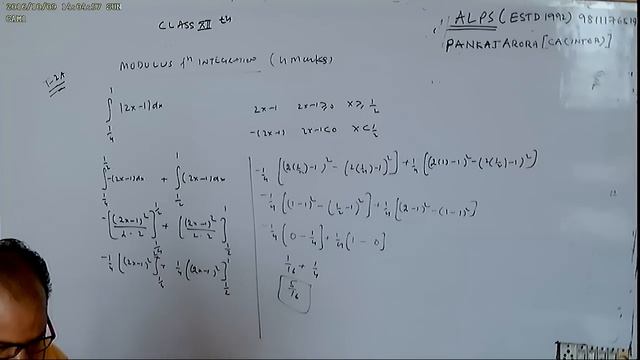 2016/10/09 14:04:57 SUN
CAM1
CLASS XII th
ALPS (ESTD 1992) 9811176619
PANKAJ ARORA [CA(INTER)]
MODULUS fn INTEGRATION (4 marks)
∫_{1/4}^{1} |2x-1| dx
2x-1 2x-1≥0 x≥1/2
-(2x-1) 2x-1<0 x<1/2
∫_{1/4}^{1/2} -(2x-1)dx + ∫_{1/2}^{1} (2x-1)dx
-[(2x-1)²/2·2]_{1/4}^{1/2} + [(2x-1)²/2·2]_{1/2}^{1}
-1/4 [(2x-1)²]_{1/4}^{1/2} + 1/4 [(2x-1)²]_{1/2}^{1}
-1/4 [(2(1/2)-1)² - (2(1/4)-1)²] + 1/4 [(2(1)-1)² - (2(1/2)-1)²]
-1/4 [(1-1)² - (1/2-1)²] + 1/4 [(2-1)² - (1-1)²]
-1/4 [0 - 1/4] + 1/4 [1 - 0]
1/16 + 1/4
5/16